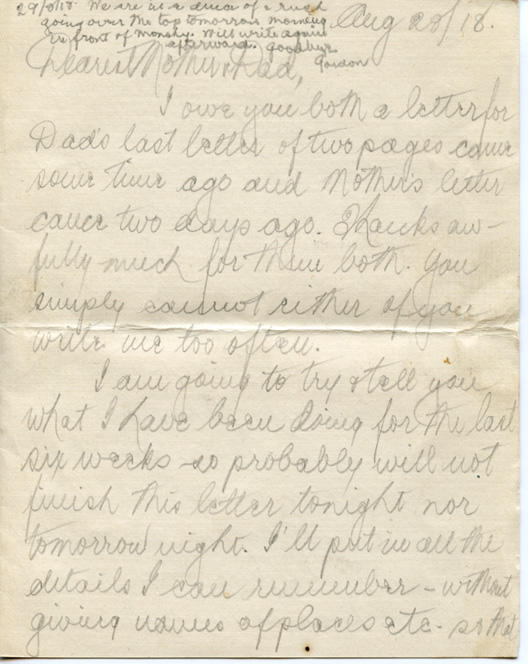 29/8/18 We are in a deuce of a rush
going over the top tomorrow morning
in front of Monchy. Will write again
afterward. Goodbye
Gordon
Aug 20/18.
Dearest Mother & Dad,
I owe you both a letter for
Dad's last letter of two pages came
some time ago and Mother's letter
came two days ago. Thanks aw-
fully much for them both. You
simply cannot either of you
write me too often.
I am going to try & tell you
what I have been doing for the last
six weeks - so probably will not
finish this letter tonight nor
tomorrow night. I'll put in all the
details I can remember - without
giving names of places etc - so that